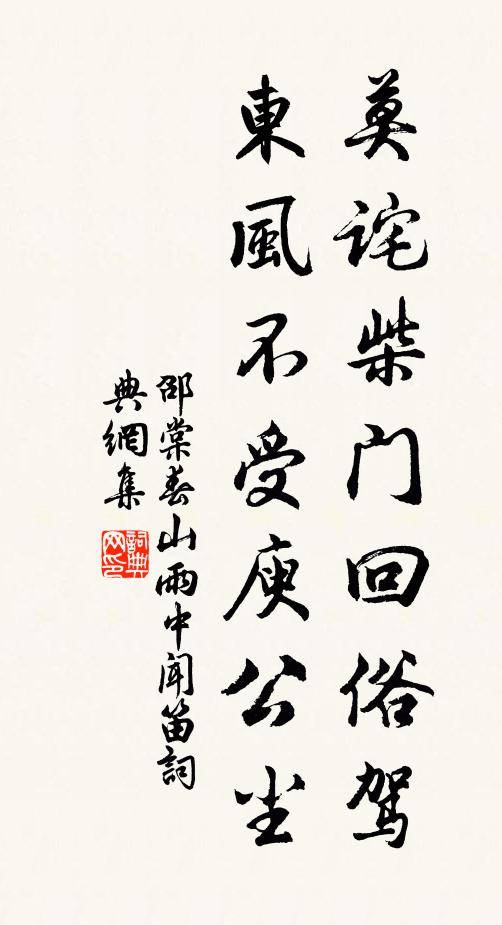 莫詫柴门回俗驾
東風不受庾公尘
邵棠春山雨中闻笛詞
典網集
詞典
网印